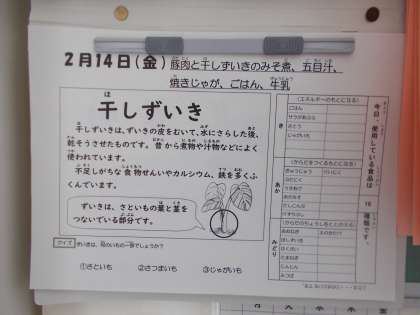 2月14日(金)豚肉と干しずいきのみそ煮、五目汁、
焼きじゃが、ごはん、牛乳
干しずいき
干しずいきは、ずいきの皮をむいて、水にさらした後、
乾そうさせたものです。昔から煮物や汁物などによく
使われています。
不足しがちな食物せんいやカルシウム、鉄を多くふ
くんでいます。
ずいきは、さといもの葉と茎を
つないでいる部分です。
クイズ
①さといも ②さつまいも ③じゃがいも
今日、使用している食品は 16 種類です。
き
(エネルギーのもとになる)
ごはん
さとう
じゃがいも
あか
(からだをつくるもとになる)
ぶたにく
みどり
ほしずいき
たまねぎ
にんじん